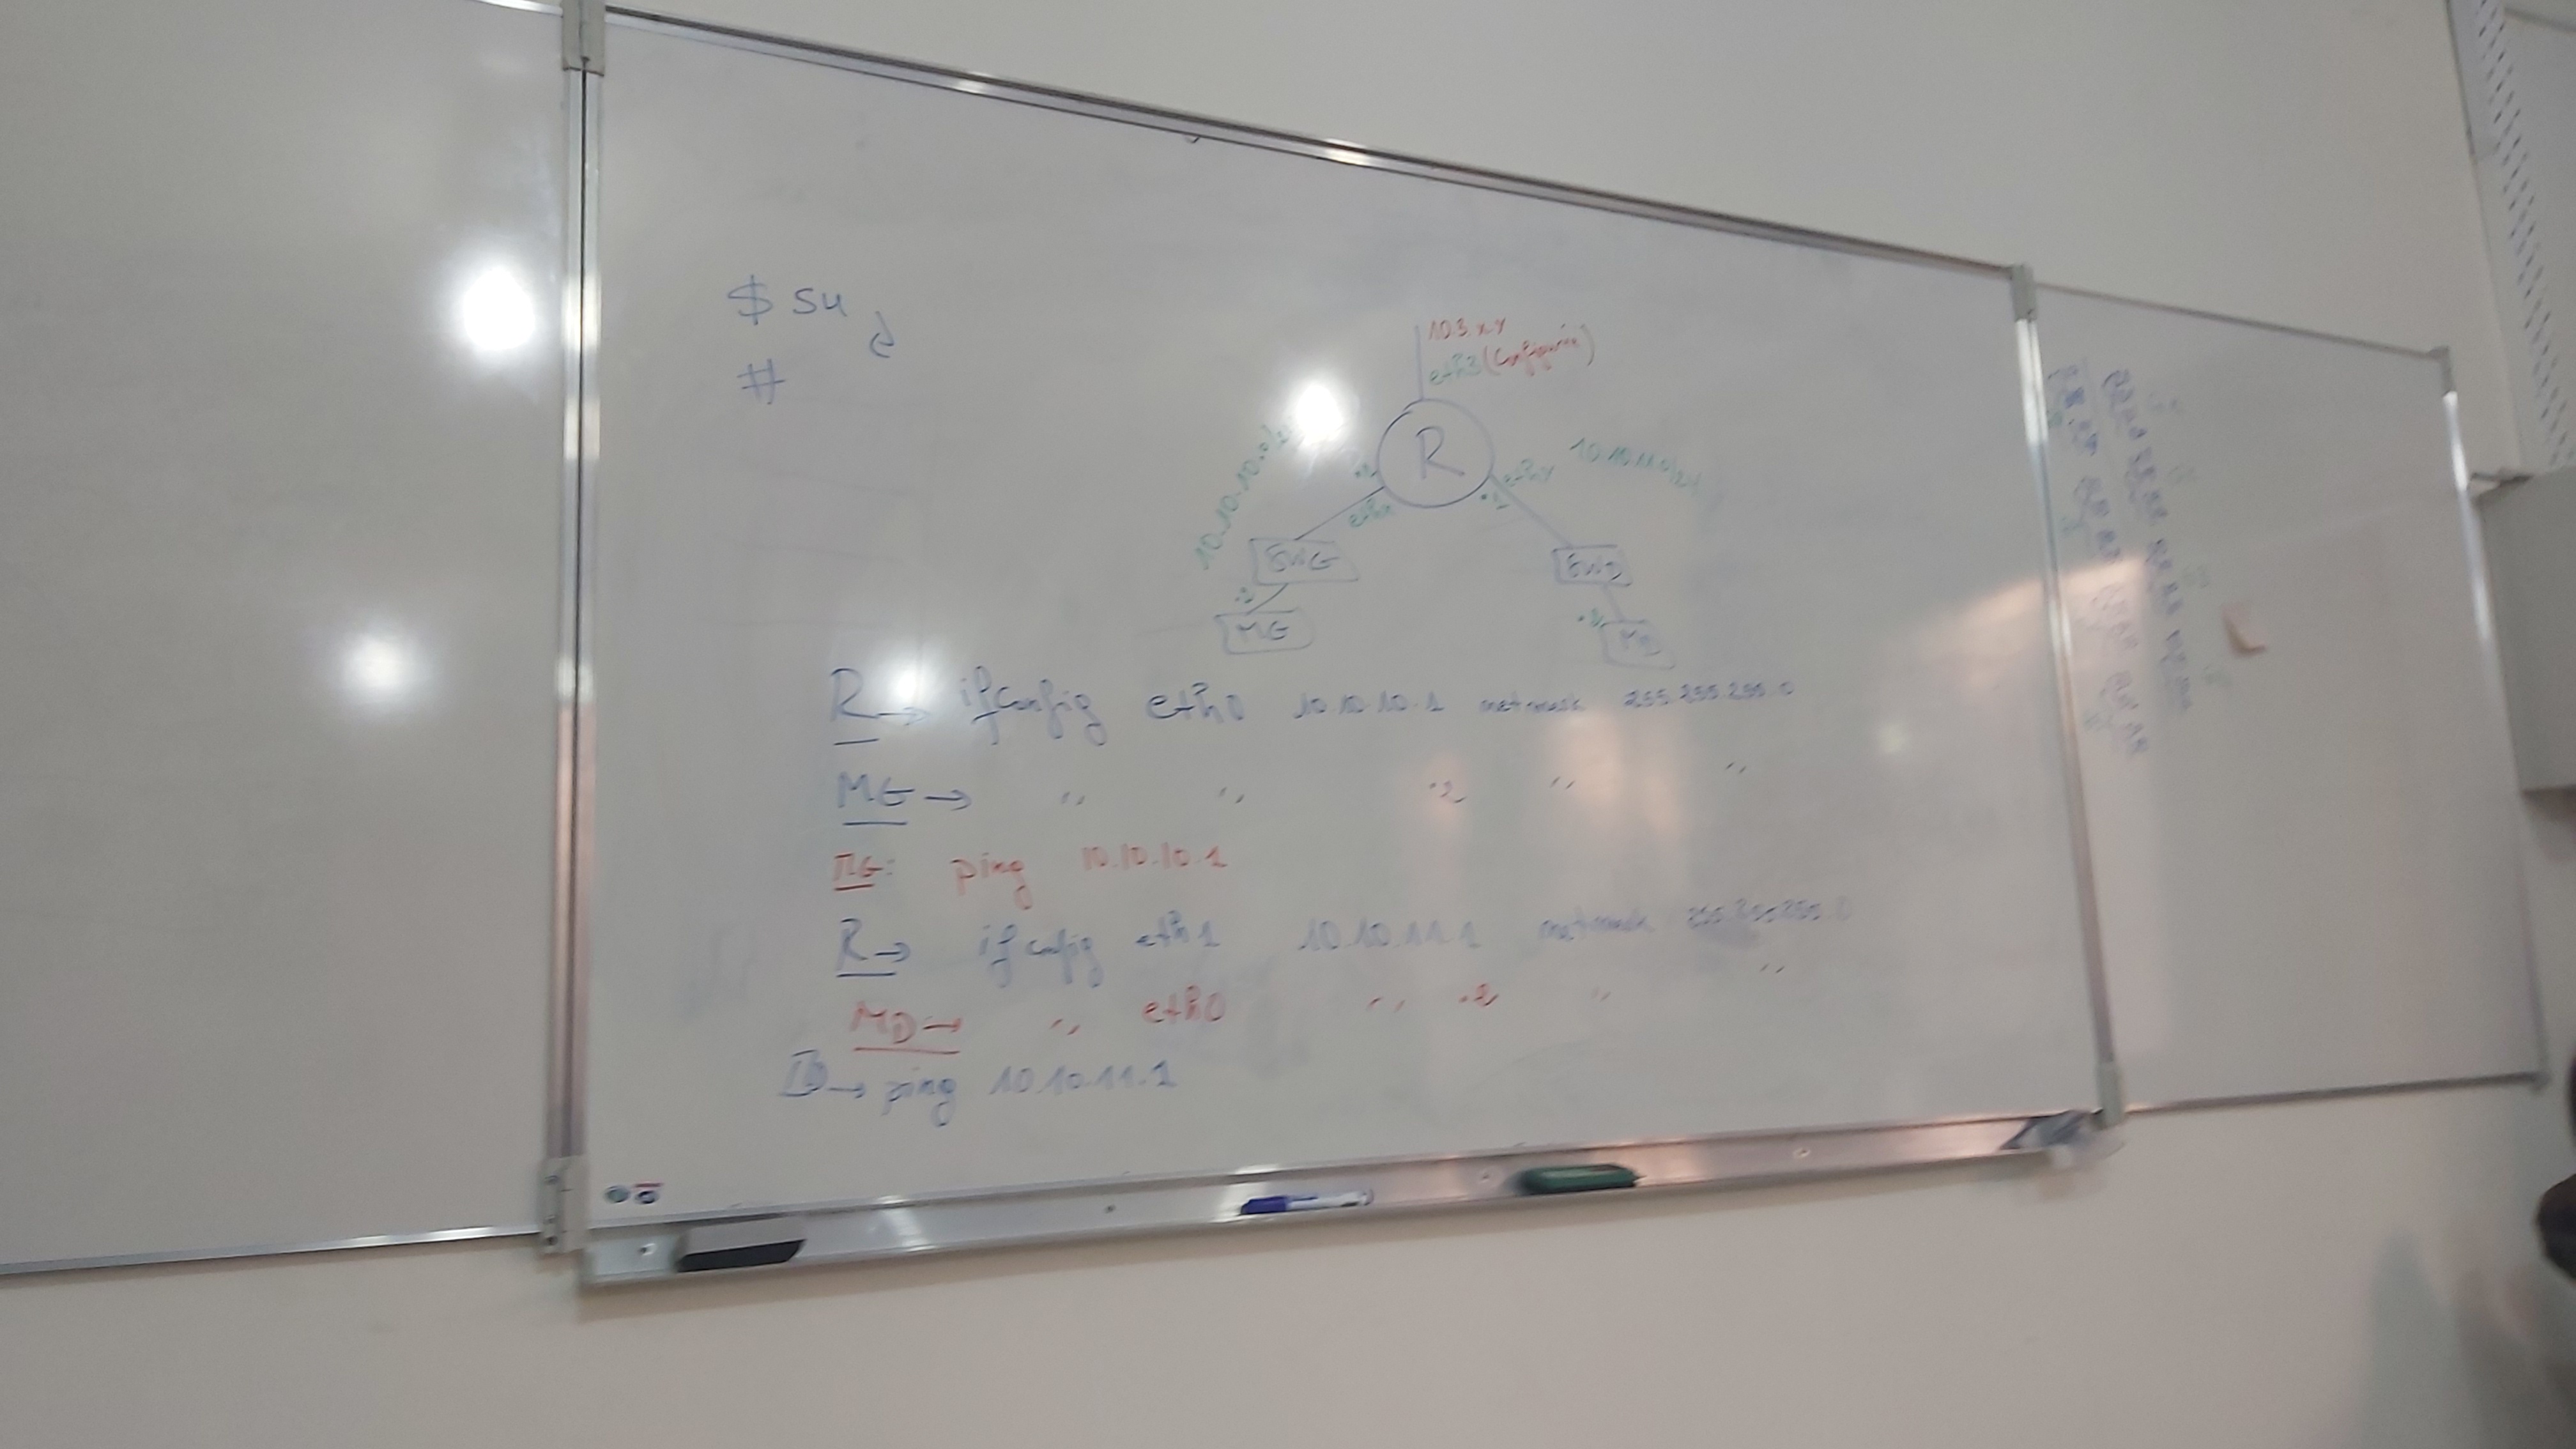 $ su
#
10.3.x.y
eth3 (Configurée)
R
10.10.10.0/2
.1
ethx
ethy
.1
10.10.11.0/24
SWG
SWD
.2
MG
.2
MD
R → ifconfig eth0 10.10.10.1 netmask 255.255.255.0
MG → " " .2 " "
MG: ping 10.10.10.1
R → ifconfig eth1 10.10.11.1 netmask 255.255.255.0
MD → " eth0 " .2 " "
→ ping 10.10.11.1